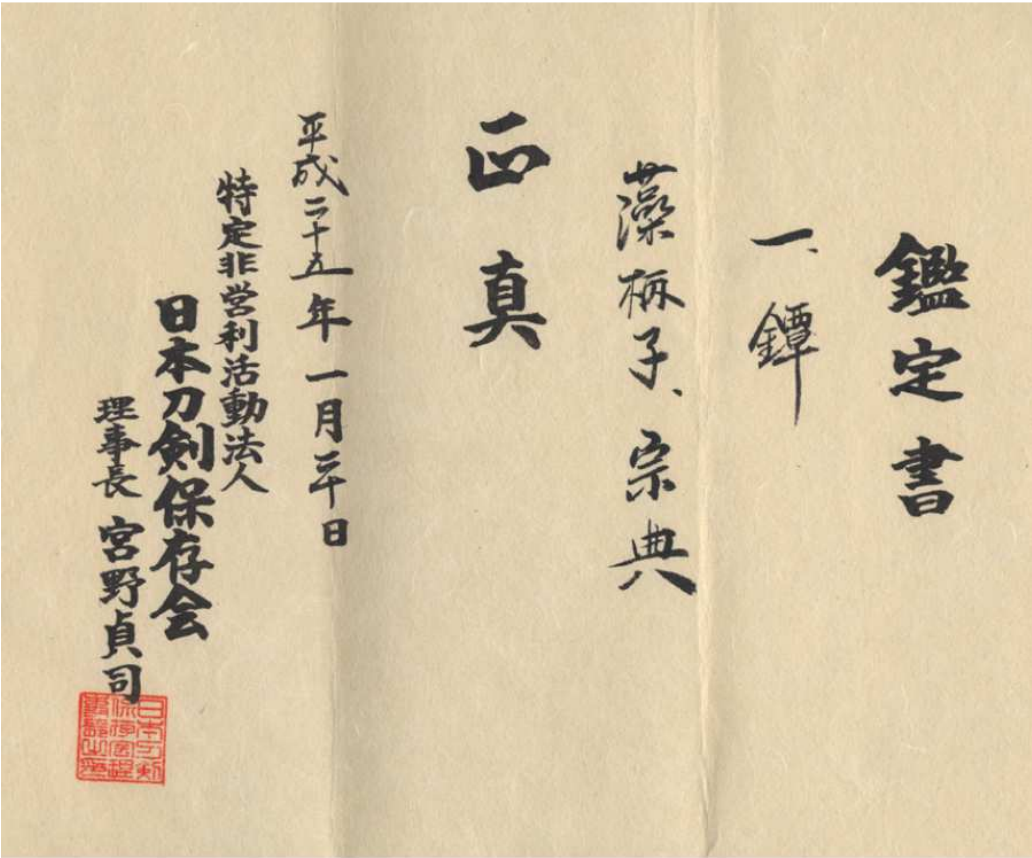 鑑定書
一、鐔
藻柄子、宗典
正真
平成二十五年一月三十日
特定非営利活動法人
日本刀剣保存会
理事長 宮野貞司
日本刀剣